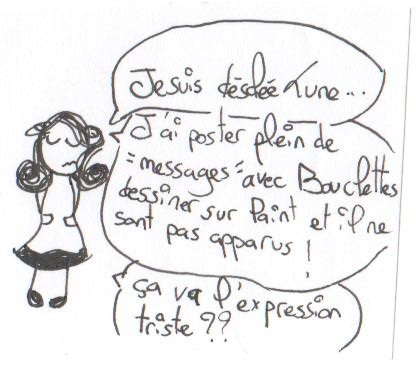 Je suis désolée Lune...
J'ai poster plein de
"messages" avec Bouclettes
dessiner sur Paint et il ne
sont pas apparus !
ça va l'expression
triste ??